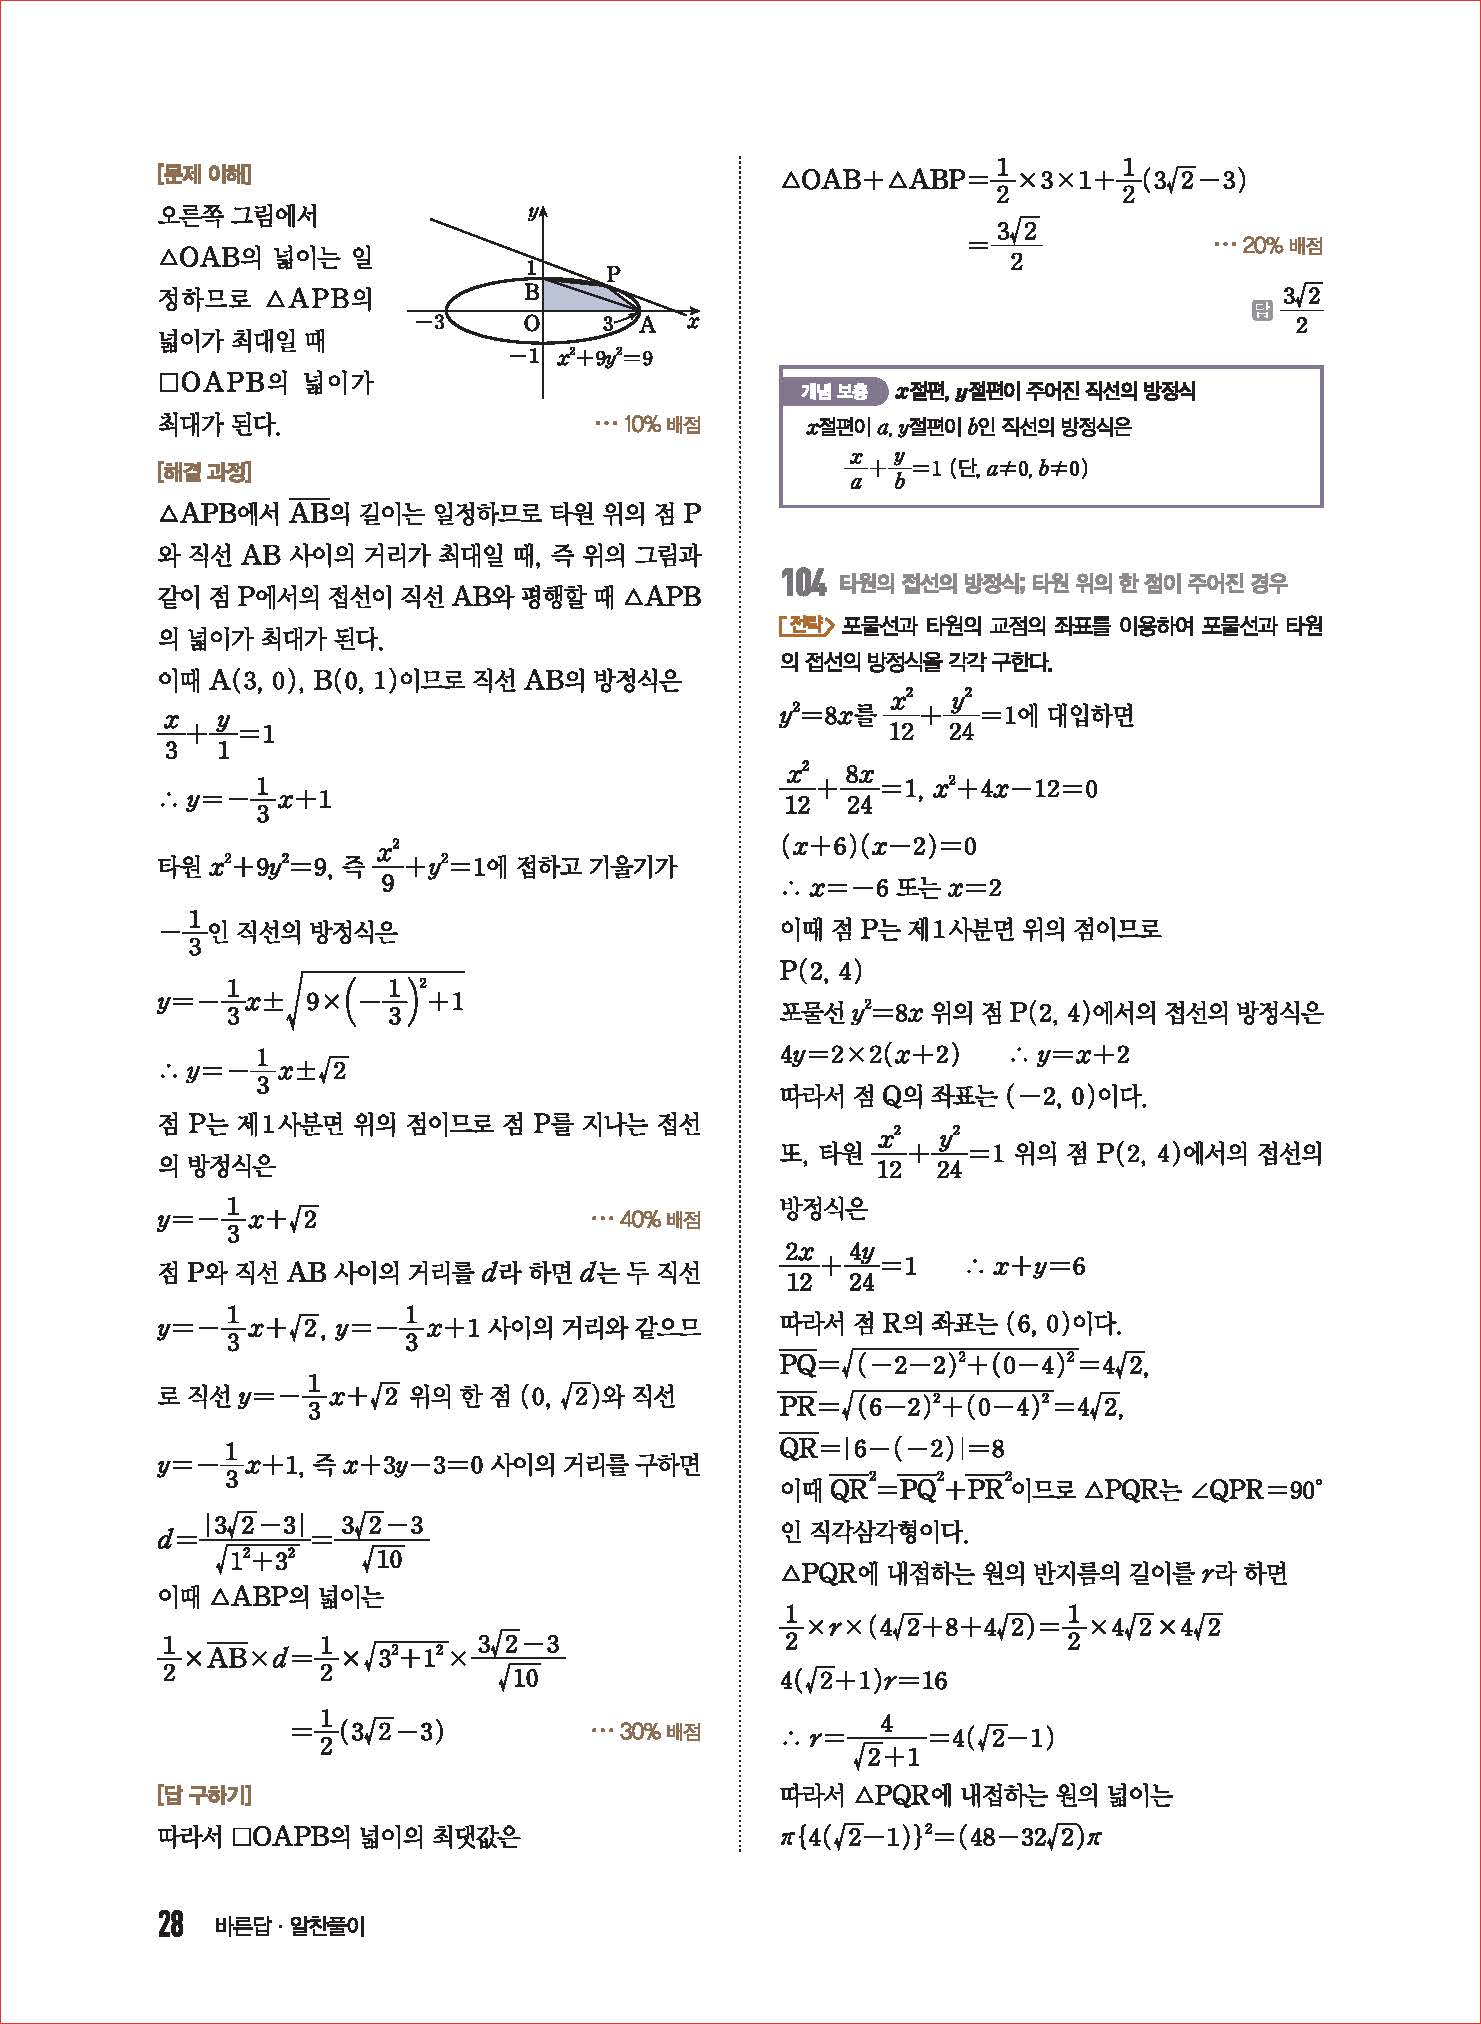 [문제 이해]
오른쪽 그림에서
△OAB의 넓이는 일
정하므로 △APB의
넓이가 최대일 때
□OAPB의 넓이가
최대가 된다. … 10% 배점
y
1
P
B
−3
O
3
A
x
−1
x²+9y²=9
[해결 과정]
△APB에서 A̅B̅의 길이는 일정하므로 타원 위의 점 P
와 직선 AB 사이의 거리가 최대일 때, 즉 위의 그림과
같이 점 P에서의 접선이 직선 AB와 평행할 때 △APB
의 넓이가 최대가 된다.
이때 A(3, 0), B(0, 1)이므로 직선 AB의 방정식은
x/3+y/1=1
∴ y=−1/3x+1
타원 x²+9y²=9, 즉 x²/9+y²=1에 접하고 기울기가
−1/3인 직선의 방정식은
y=−1/3x±√(9×(−1/3)²+1)
∴ y=−1/3x±√2
점 P는 제1사분면 위의 점이므로 점 P를 지나는 접선
의 방정식은
y=−1/3x+√2 … 40% 배점
점 P와 직선 AB 사이의 거리를 d라 하면 d는 두 직선
y=−1/3x+√2, y=−1/3x+1 사이의 거리와 같으므
로 직선 y=−1/3x+√2 위의 한 점 (0, √2)와 직선
y=−1/3x+1, 즉 x+3y−3=0 사이의 거리를 구하면
d=|3√2−3|/√(1²+3²)=(3√2−3)/√10
이때 △ABP의 넓이는
1/2×A̅B̅×d=1/2×√(3²+1²)×(3√2−3)/√10
=1/2(3√2−3) … 30% 배점
[답 구하기]
따라서 □OAPB의 넓이의 최댓값은
△OAB+△ABP=1/2×3×1+1/2(3√2−3)
=3√2/2 … 20% 배점
답 3√2/2
개념 보충 x절편, y절편이 주어진 직선의 방정식
x절편이 a, y절편이 b인 직선의 방정식은
x/a+y/b=1 (단, a≠0, b≠0)
104 타원의 접선의 방정식; 타원 위의 한 점이 주어진 경우
전략 포물선과 타원의 교점의 좌표를 이용하여 포물선과 타원
의 접선의 방정식을 각각 구한다.
y²=8x를 x²/12+y²/24=1에 대입하면
x²/12+8x/24=1, x²+4x−12=0
(x+6)(x−2)=0
∴ x=−6 또는 x=2
이때 점 P는 제1사분면 위의 점이므로
P(2, 4)
포물선 y²=8x 위의 점 P(2, 4)에서의 접선의 방정식은
4y=2×2(x+2) ∴ y=x+2
따라서 점 Q의 좌표는 (−2, 0)이다.
또, 타원 x²/12+y²/24=1 위의 점 P(2, 4)에서의 접선의
방정식은
2x/12+4y/24=1 ∴ x+y=6
따라서 점 R의 좌표는 (6, 0)이다.
P̅Q̅=√((−2−2)²+(0−4)²)=4√2,
P̅R̅=√((6−2)²+(0−4)²)=4√2,
Q̅R̅=|6−(−2)|=8
이때 Q̅R̅²=P̅Q̅²+P̅R̅²이므로 △PQR는 ∠QPR=90°
인 직각삼각형이다.
△PQR에 내접하는 원의 반지름의 길이를 r라 하면
1/2×r×(4√2+8+4√2)=1/2×4√2×4√2
4(√2+1)r=16
∴ r=4/(√2+1)=4(√2−1)
따라서 △PQR에 내접하는 원의 넓이는
π{4(√2−1)}²=(48−32√2)π
28 바른답 · 알찬풀이